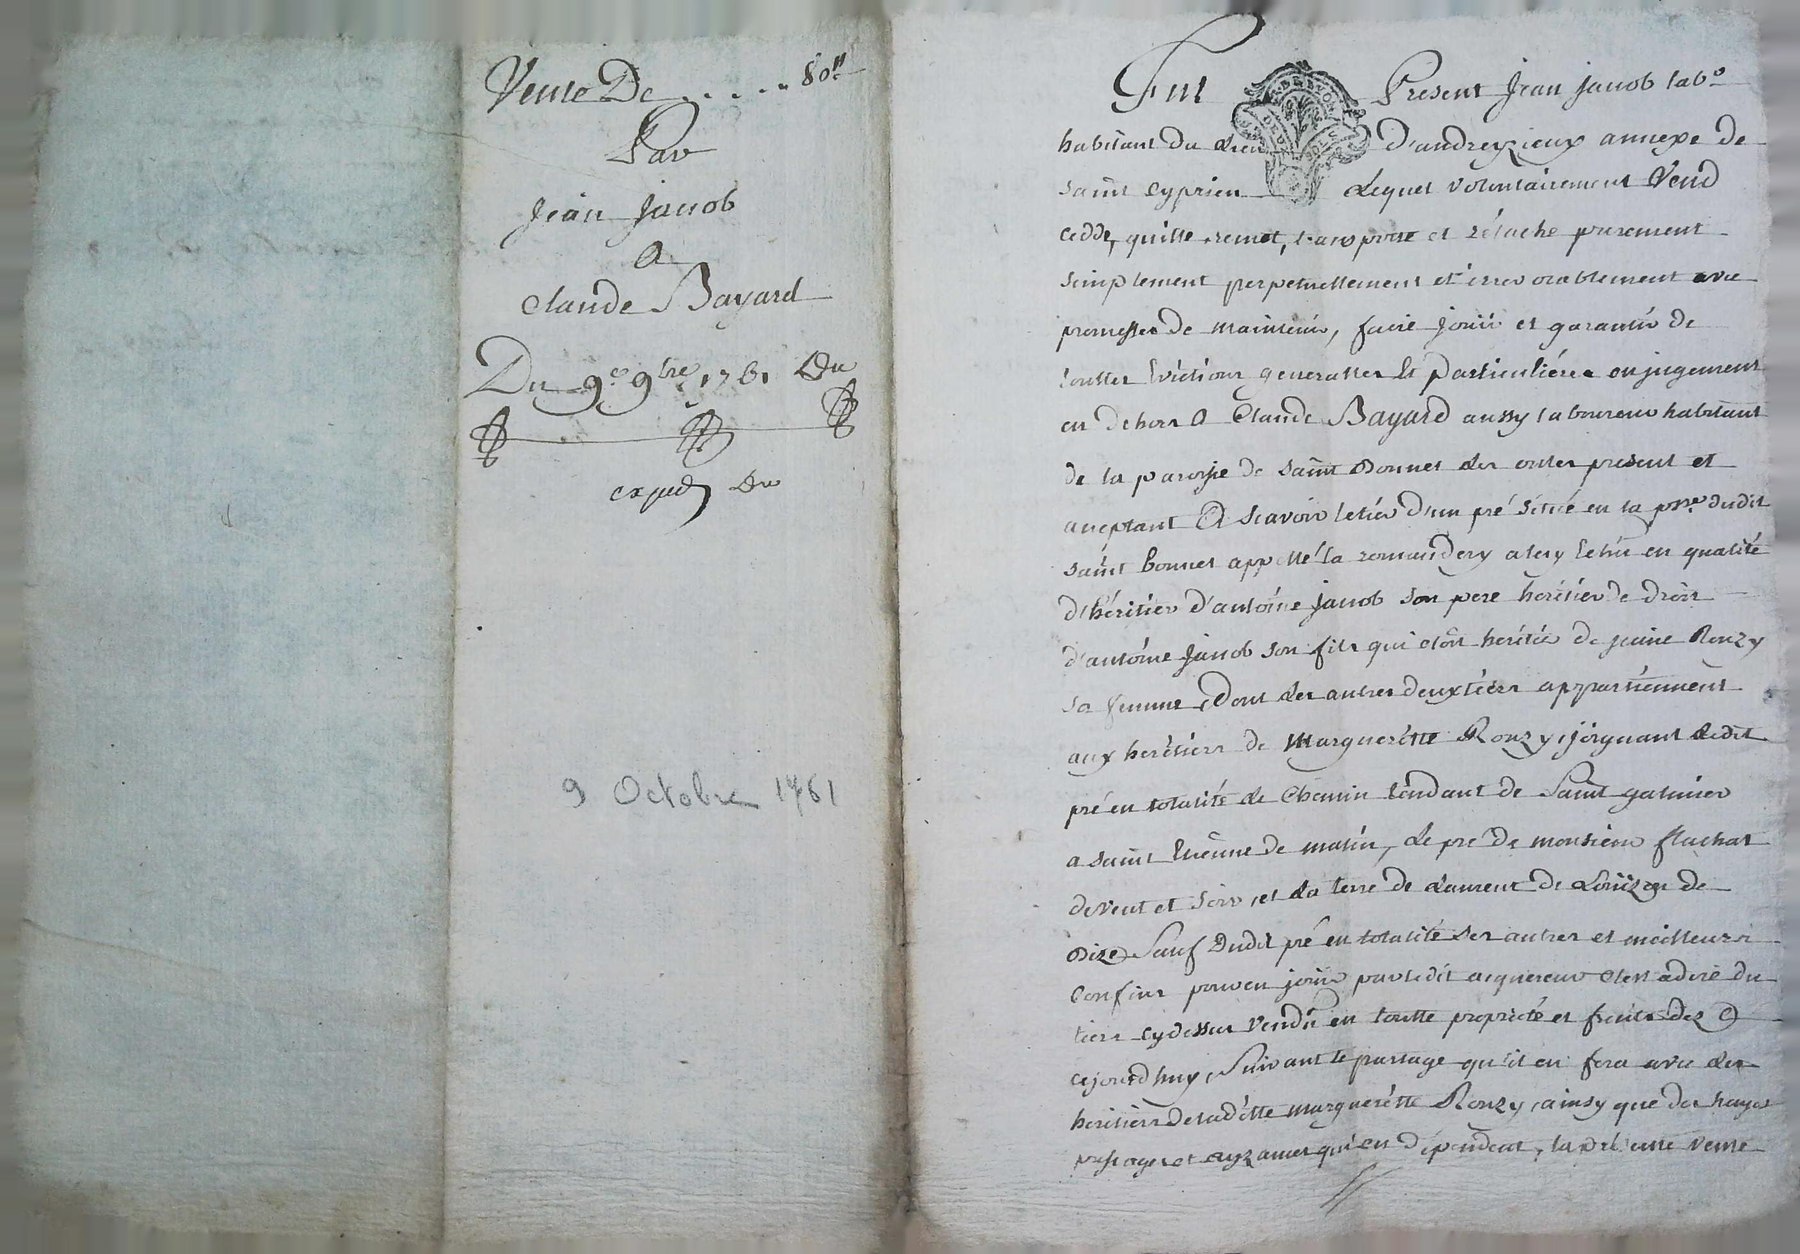 Vente De . . . . . . 80"
Par
Jean Jacob
A
Claude Bayard
Du 9e 9bre 1761 Du
exped Du
9 Octobre 1761
Fut Present Jean Jacob labo
habitant du Lieu d'andrezieux annexe de
saint cyprien Lequel volontairement Vend
cedde, quitte remet, transporte et relache purement
simplement perpetuellement et irrevocablement avec
promesse de maintenir, faire jouir et garantir de
touttes Evictions generalles Et particulières en jugement
en dehors A Claude Bayard aussy laboureur habitant
de la paroisse de saint Bonnet Les oules present et
acceptant A scavoir le tier d'un pré Situé en la psse dudit
saint bonnet appellé la
d'héritier d'antoine Jacob son pere heritier de droit
d'antoine Jacob son fils qui etoit heritier de jeanne Ronzy
sa femme, Dont Les autres deux tiers appartiennent
aux heretiers de Marguerétte Ronzy, joignant Ledit
pré en totalité Le Chemin tendant de Saint galmier
a saint Etienne de matin, Le pré de monsieur flachat
de vent et soir, et La terre de Laurent de
Bize Sauf Dudit pré en totalité ses autres et meilleurs
Confins pour en jouir par ledit acquereur du
tiers cydessus vendû en toutte proprieté et fruits dez
cejourdhuy, Suivant le partage qu'il en fera avec Les
heritiers de ladétte marguerétte Ronzy, ainsy que des hayes
passages et ayzances qui en dépendent, la présente vente